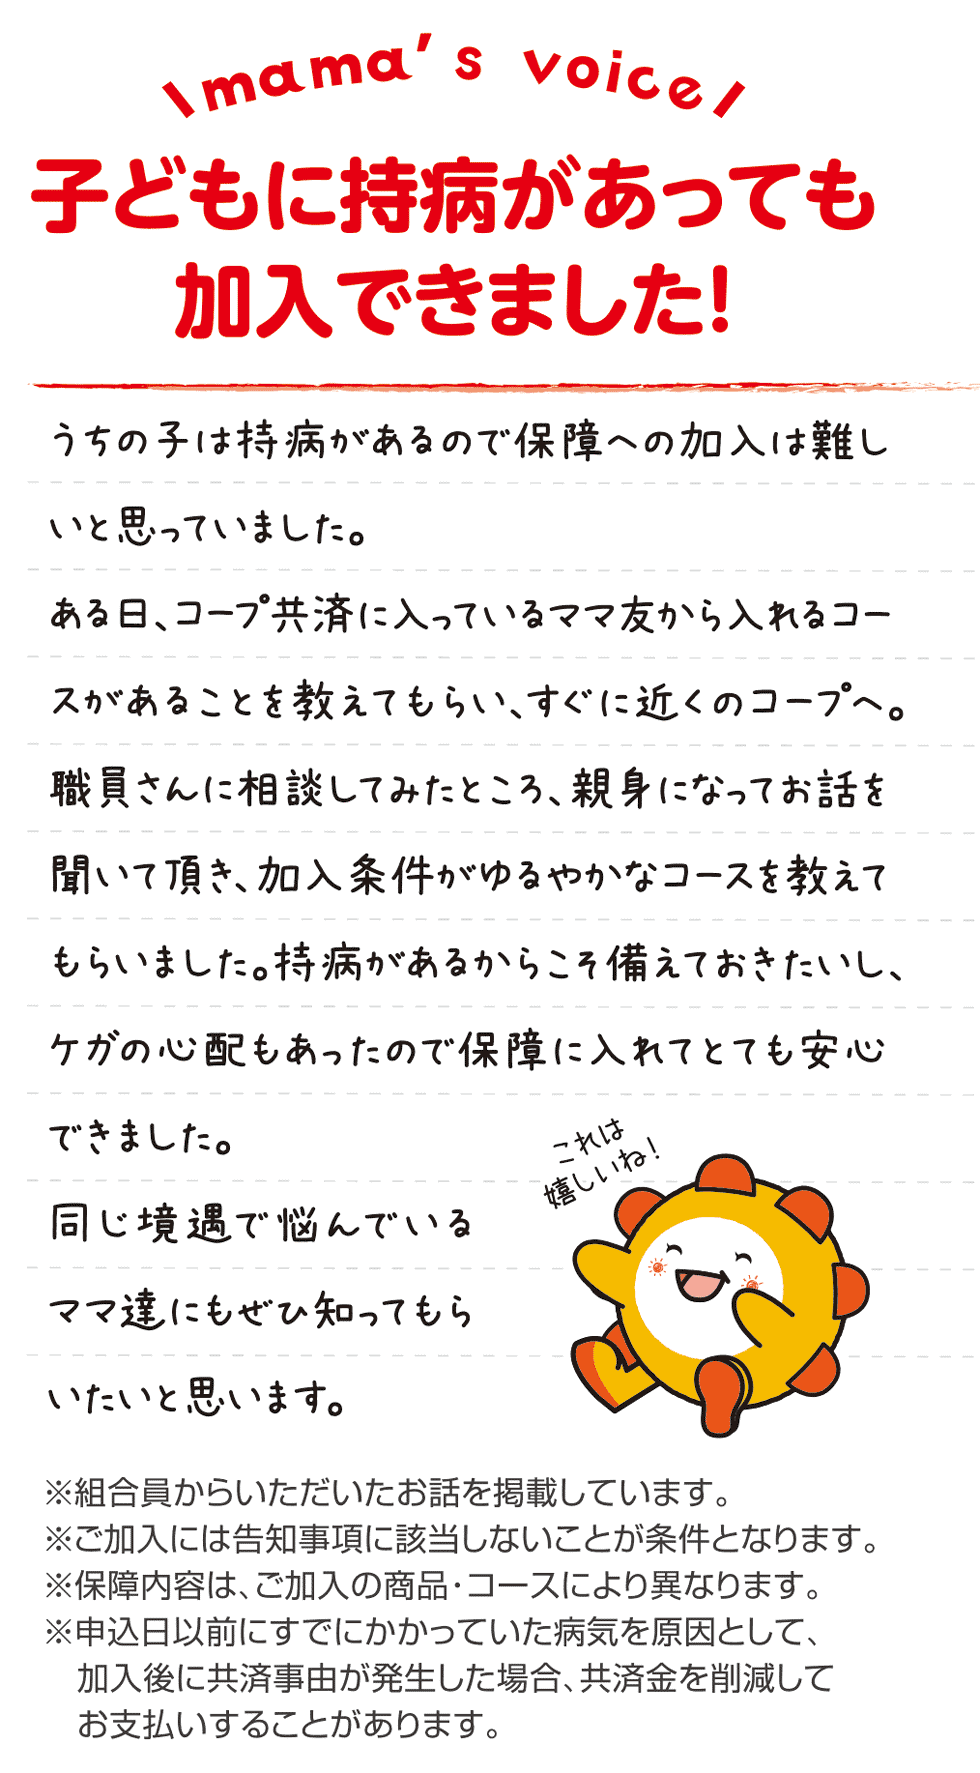 \mama's voice/
子どもに持病があっても
加入できました!
うちの子は持病があるので保障への加入は難し
いと思っていました。
ある日、コープ共済に入っているママ友から入れるコー
スがあることを教えてもらい、すぐに近くのコープへ。
職員さんに相談してみたところ、親身になってお話を
聞いて頂き、加入条件がゆるやかなコースを教えて
もらいました。持病があるからこそ備えておきたいし、
ケガの心配もあったので保障に入れてとても安心
できました。
これは
嬉しいね!
同じ境遇で悩んでいる
ママ達にもぜひ知ってもら
いたいと思います。
※組合員からいただいたお話を掲載しています。
※ご加入には告知事項に該当しないことが条件となります。
※保障内容は、ご加入の商品・コースにより異なります。
※申込日以前にすでにかかっていた病気を原因として、
加入後に共済事由が発生した場合、共済金を削減して
お支払いすることがあります。